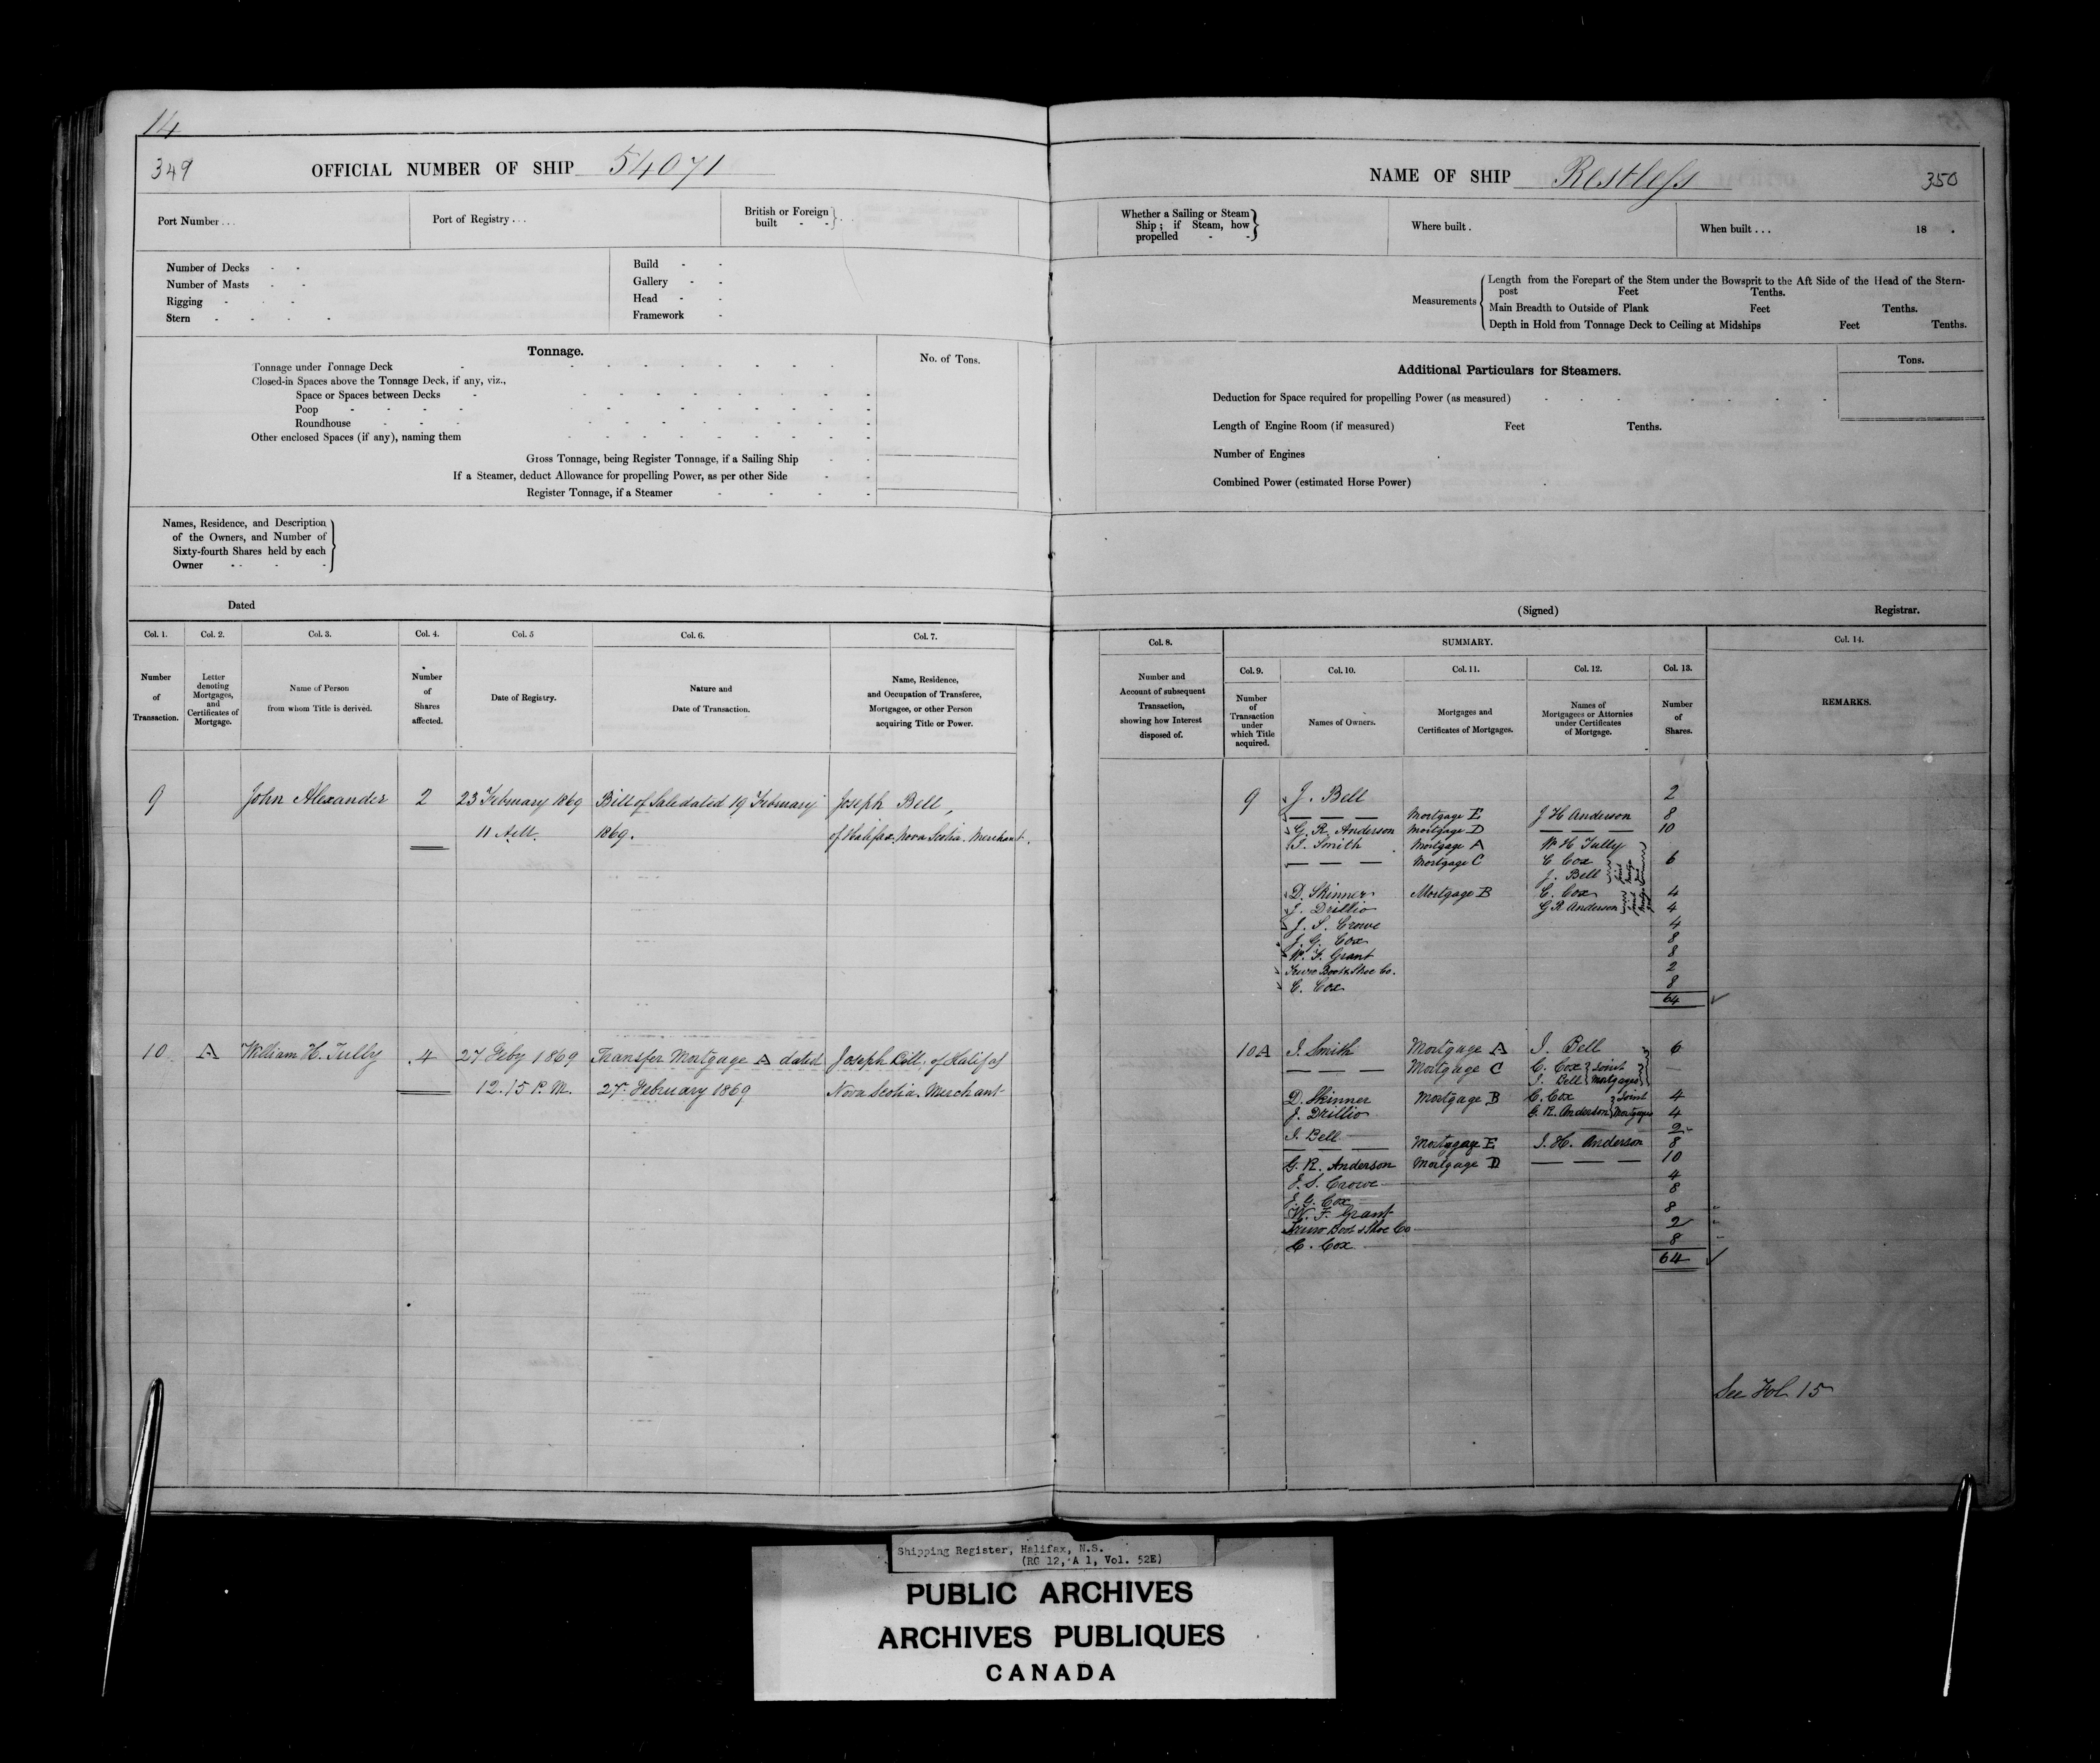 14
349 OFFICIAL NUMBER OF SHIP 54071
Port Number . . .
Port of Registry . . .
British or Foreign
built - -
Number of Decks - -
Number of Masts - -
Rigging - - -
Stern - - - -
Build - -
Gallery - -
Head - -
Framework -
Tonnage.
No. of Tons.
Tonnage under Tonnage Deck
Closed-in Spaces above the Tonnage Deck, if any, viz.,
Space or Spaces between Decks
Poop
Roundhouse
Other enclosed Spaces (if any), naming them
Gross Tonnage, being Register Tonnage, if a Sailing Ship
If a Steamer, deduct Allowance for propelling Power, as per other Side
Register Tonnage, if a Steamer
Names, Residence, and Description
of the Owners, and Number of
Sixty-fourth Shares held by each
Owner
Dated
Col. 1. Col. 2. Col. 3. Col. 4. Col. 5 Col. 6. Col. 7.
Number
of
Transaction.
Letter
denoting
Mortgages,
and
Certificates of
Mortgage.
Name of Person
from whom Title is derived.
Number
of
Shares
affected.
Date of Registry.
Nature and
Date of Transaction.
Name, Residence,
and Occupation of Transferee,
Mortgagee, or other Person
acquiring Title or Power.
9 John Alexander 2 23 February 1869 Bill of Sale dated 19 February Joseph Bell,
11 A.M. 1869. of Halifax. Nova Scotia. Merchant.
10 A William H. Tully 4 27 Feby 1869 Transfer Mortgage A dated Joseph Bell. of Halifax
12.15 P.M. 27 February 1869 Nova Scotia. Merchant
NAME OF SHIP Restless 350
Whether a Sailing or Steam
Ship; if Steam, how
propelled - -
Where built .
When built . . . 18 .
Measurements
Length from the Forepart of the Stem under the Bowsprit to the Aft Side of the Head of the Stern-
post Feet Tenths.
Main Breadth to Outside of Plank Feet Tenths.
Depth in Hold from Tonnage Deck to Ceiling at Midships Feet Tenths.
Additional Particulars for Steamers.
Tons.
Deduction for Space required for propelling Power (as measured)
Length of Engine Room (if measured) Feet Tenths.
Number of Engines
Combined Power (estimated Horse Power)
(Signed) Registrar.
Col. 8. SUMMARY. Col. 14.
Col. 9. Col. 10. Col. 11. Col. 12. Col. 13.
Number and
Account of subsequent
Transaction,
showing how Interest
disposed of.
Number
of
Transaction
under
which Title
acquired.
Names of Owners.
Mortgages and
Certificates of Mortgages.
Names of
Mortgagees or Attornies
under Certificates
of Mortgage.
Number
of
Shares.
REMARKS.
9 J. Bell 2
— — — Mortgage E J H Anderson 8
G. R. Anderson Mortgage D — — — 10
I. Smith Mortgage A W H Tully
— — — Mortgage C C Cox 6
J. Bell
D. Skinner Mortgage B C. Cox 4
J. Drillio G R Anderson 4
J. S. Crowe 4
J. G. Cox 8
W. F. Grant 8
Truro Boot & Shoe Co. 2
C. Cox 8
64
10A I. Smith Mortgage A J. Bell 6
— — — Mortgage C C. Cox Joint —
J. Bell Mortgages
D. Skinner Mortgage B C. Cox Joint 4
J. Drillio G. R. Anderson Mortgages 4
J. Bell 2
— — — Mortgage E J. H. Anderson 8
G. R. Anderson Mortgage D — — — 10
J. S. Crowe 4
J. G. Cox 8
W. F. Grant 8
Truro Boot & Shoe Co 2
C. Cox 8
64
See Fol 15
Shipping Register, Halifax, N.S.
(RG 12, A 1, Vol. 52E)
PUBLIC ARCHIVES
ARCHIVES PUBLIQUES
CANADA